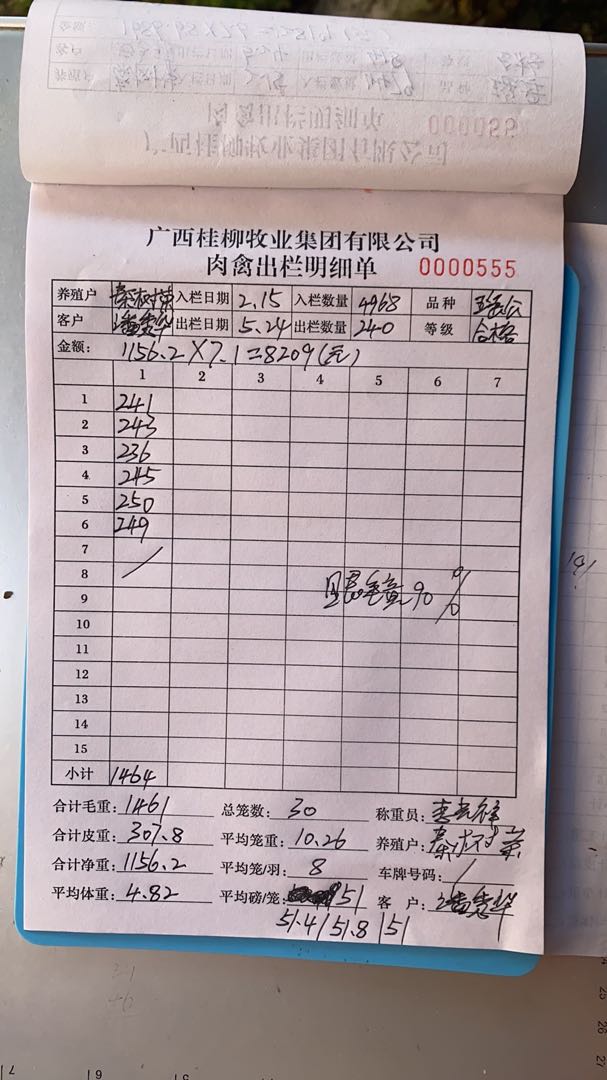 广西桂柳牧业集团有限公司
肉禽出栏明细单 0000555
养殖户 入栏日期 2.15 入栏数量 4968 品种
客户 出栏日期 5.24 出栏数量 240 等级 合格
金额: 1156.2×7.1=8209(元)
1 2 3 4 5 6 7
1 241
2 243
3 236
4 245
5 250
6 249
7
8 /
9 90%
10
11
12
13
14
15
小计 1464
合计毛重: 1461 总笼数: 30 称重员:
合计皮重: 307.8 平均笼重: 10.26 养殖户:
合计净重: 1156.2 平均笼/羽: 8 车牌号码: /
平均体重: 4.82 平均磅/笼: 51 客户:
51.4/51.8/51